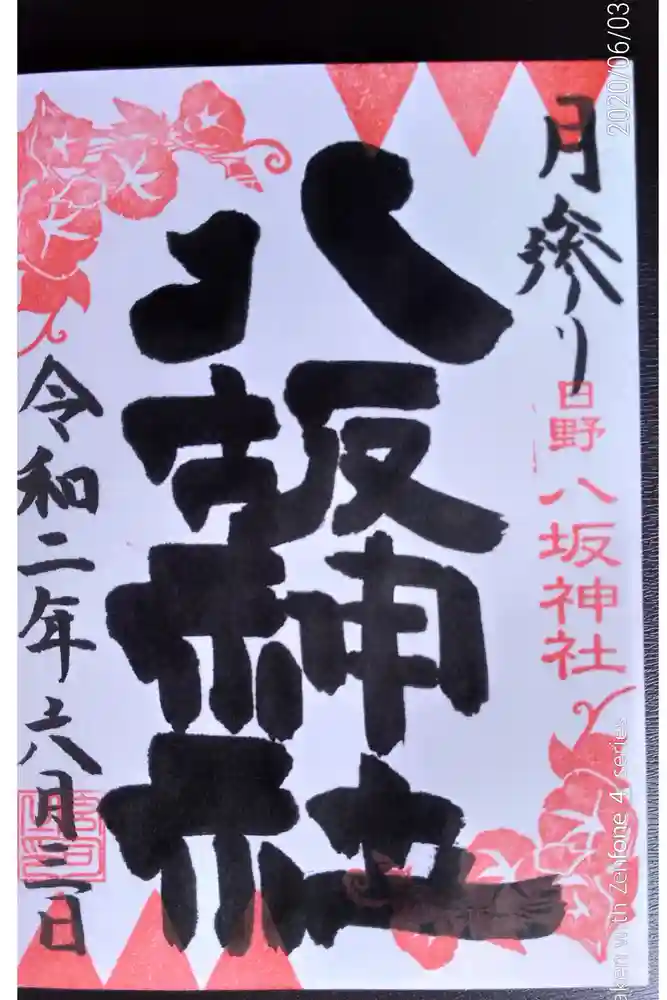 月参り
日野
八坂神社
八坂神社
令和二年六月三日
2020/06/03
aken with Zenfone 4 series